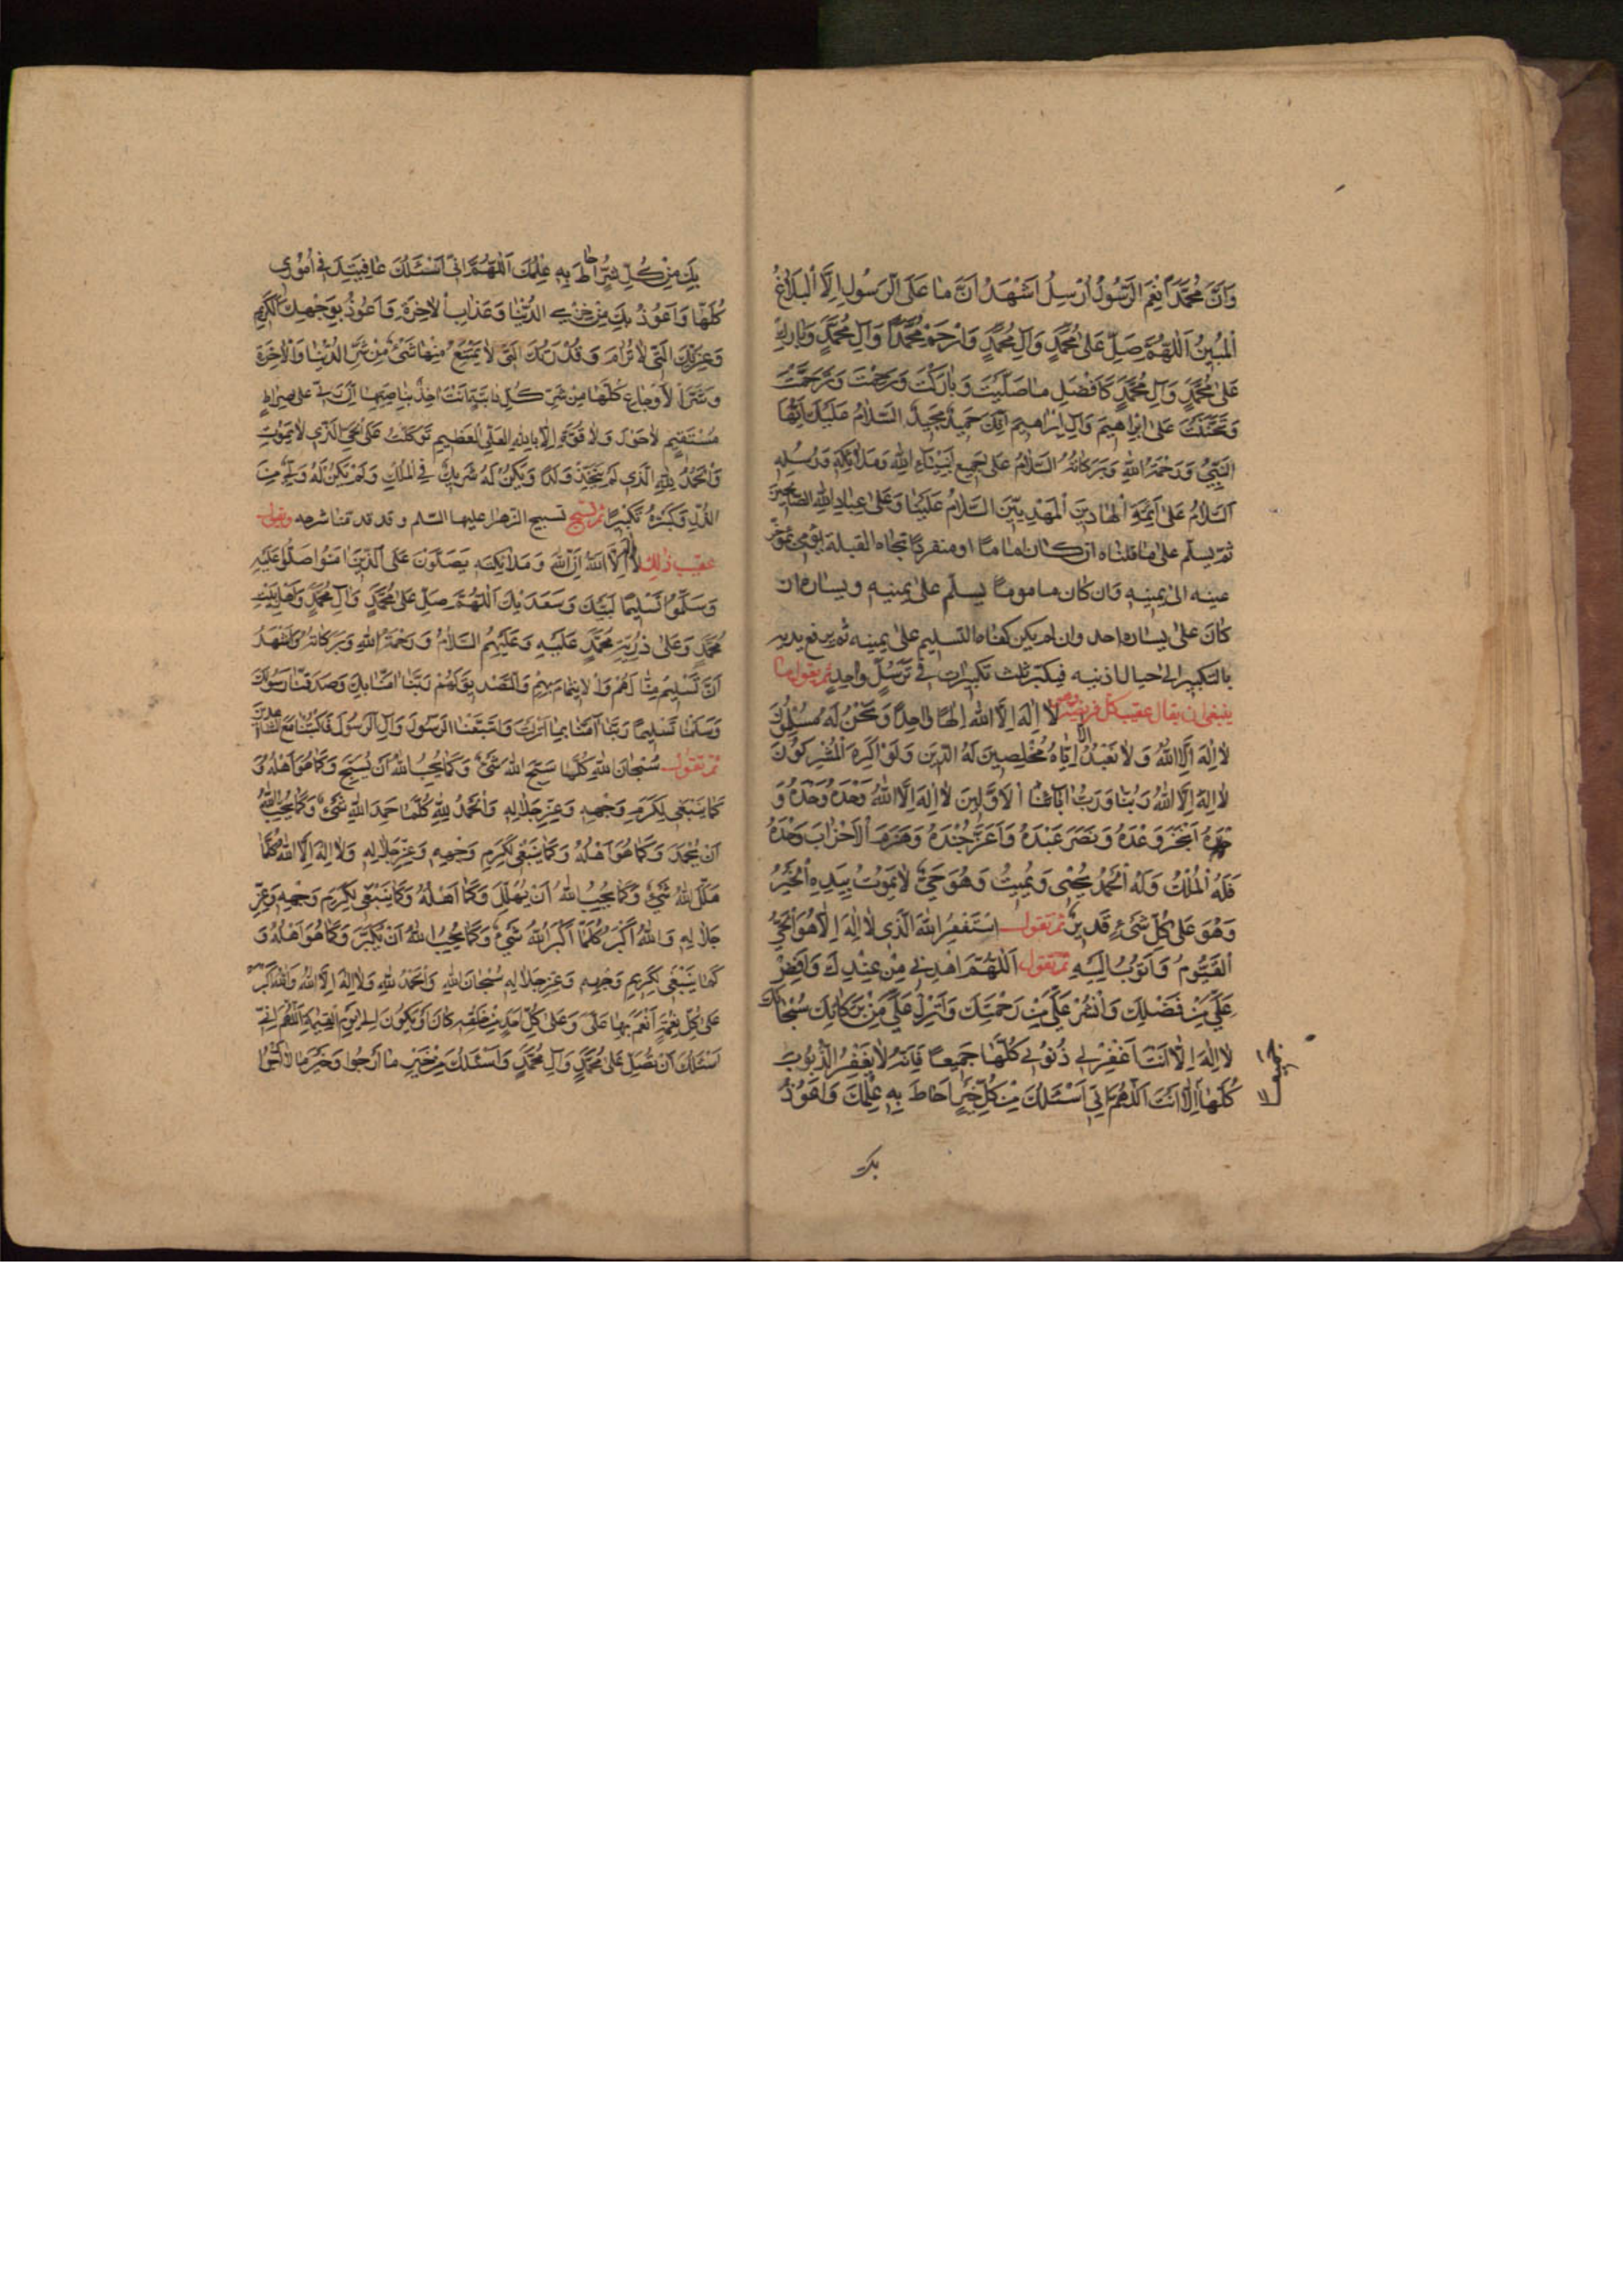 وَاَنَّ مُحَمَّداً نِعْمَ الرَّسُولُ اُرْسِلَ اَشْهَدُ اَنَّ مٰا عَلَى الرَّسُولِ اِلَّا الْبَلٰاغُ
الْمُبِينُ اَللّٰهُمَّ صَلِّ عَلىٰ مُحَمَّدٍ وَاٰلِ مُحَمَّدٍ وَارْحَمْ مُحَمَّداً وَاٰلَ مُحَمَّدٍ وَبٰارِكْ
عَلىٰ مُحَمَّدٍ وَاٰلِ مُحَمَّدٍ كَاَفْضَلِ مٰا صَلَّيْتَ وَبٰارَكْتَ وَرَحِمْتَ وَتَرَحَّمْتَ
وَتَحَنَّنْتَ عَلىٰ اِبْرٰاهِيمَ وَاٰلِ اِبْرٰاهِيمَ اِنَّكَ حَمِيدٌ مَجِيدٌ السَّلٰامُ عَلَيْكَ اَيُّهَا
النَّبِيُّ وَرَحْمَةُ اللّٰهِ وَبَرَكٰاتُهُ السَّلٰامُ عَلىٰ جَمِيعِ اَنْبِيٰاءِ اللّٰهِ وَمَلٰائِكَتِهِ وَرُسُلِهِ
اَلسَّلٰامُ عَلَى الْاَئِمَّةِ الْهٰادِينَ الْمَهْدِيِّينَ السَّلٰامُ عَلَيْنٰا وَعَلىٰ عِبٰادِ اللّٰهِ الصّٰالِحِينَ
ثم يسلّم على ما قلناه ان كان اماما او منفردا تجاه القبلة يؤمى بمؤخر
عينه الى يمينه وان كان ماموما يسلّم على يمينه ويساره ان
كان على يساره احد وان لم يكن كفاه التسليم على يمينه ثم يرفع يديه
بالتكبير الى حيال اذنيه فيكبر ثلث تكبيرات في ترسّل واحد ثم يقول ما
ينبغي ان يقال عقيب كل فريضة وهو لٰا اِلٰهَ اِلَّا اللّٰهُ اِلٰهاً وٰاحِداً وَنَحْنُ لَهُ مُسْلِمُونَ
لٰا اِلٰهَ اِلَّا اللّٰهُ وَلٰا نَعْبُدُ اِلّٰا اِيّٰاهُ مُخْلِصِينَ لَهُ الدِّينَ وَلَوْ كَرِهَ الْمُشْرِكُونَ
لٰا اِلٰهَ اِلَّا اللّٰهُ رَبُّنٰا وَرَبُّ اٰبٰائِنَا الْاَوَّلِينَ لٰا اِلٰهَ اِلَّا اللّٰهُ وَحْدَهُ وَحْدَهُ وَ
حْدَهُ اَنْجَزَ وَعْدَهُ وَنَصَرَ عَبْدَهُ وَاَعَزَّ جُنْدَهُ وَهَزَمَ الْاَحْزٰابَ وَحْدَهُ
فَلَهُ الْمُلْكُ وَلَهُ الْحَمْدُ يُحْيِى وَيُمِيتُ وَهُوَ حَيٌّ لٰا يَمُوتُ بِيَدِهِ الْخَيْرُ
وَهُوَ عَلىٰ كُلِّ شَيْءٍ قَدِيرٌ ثم تقول اَسْتَغْفِرُ اللّٰهَ الَّذِي لٰا اِلٰهَ اِلّٰا هُوَ الْحَيُّ
الْقَيُّومُ وَاَتُوبُ اِلَيْهِ ثم تقول اَللّٰهُمَّ اهْدِنِي مِنْ عِنْدِكَ وَاَفِضْ
عَلَيَّ مِنْ فَضْلِكَ وَانْشُرْ عَلَيَّ مِنْ رَحْمَتِكَ وَاَنْزِلْ عَلَيَّ مِنْ بَرَكٰاتِكَ سُبْحٰانَكَ
لٰا اِلٰهَ اِلّٰا اَنْتَ اغْفِرْ لِي ذُنُوبِي كُلَّهٰا جَمِيعاً فَاِنَّهُ لٰا يَغْفِرُ الذُّنُوبَ
كُلَّهٰا اِلّٰا اَنْتَ اَللّٰهُمَّ اِنِّي اَسْئَلُكَ مِنْ كُلِّ خَيْرٍ اَحٰاطَ بِهِ عِلْمُكَ وَاَعُوذُ
بك
بِكَ مِنْ كُلِّ شَرٍّ اَحٰاطَ بِهِ عِلْمُكَ اَللّٰهُمَّ اِنِّي اَسْئَلُكَ عٰافِيَتَكَ فِي اُمُورِي
كُلِّهٰا وَاَعُوذُ بِكَ مِنْ خِزْيِ الدُّنْيٰا وَعَذٰابِ الْاٰخِرَةِ وَاَعُوذُ بِوَجْهِكَ الْكَرِيمِ
وَعِزَّتِكَ الَّتِي لٰا تُرٰامُ وَقُدْرَتِكَ الَّتِي لٰا يَمْتَنِعُ مِنْهٰا شَيْءٌ مِنْ شَرِّ الدُّنْيٰا وَالْاٰخِرَةِ
وَشَرِّ الْاَوْجٰاعِ كُلِّهٰا مِنْ شَرِّ كُلِّ دٰابَّةٍ اَنْتَ اٰخِذٌ بِنٰاصِيَتِهٰا اِنَّ رَبِّي عَلىٰ صِرٰاطٍ
مُسْتَقِيمٍ لٰا حَوْلَ وَلٰا قُوَّةَ اِلّٰا بِاللّٰهِ الْعَلِيِّ الْعَظِيمِ تَوَكَّلْتُ عَلَى الْحَيِّ الَّذِي لٰا يَمُوتُ
وَالْحَمْدُ لِلّٰهِ الَّذِي لَمْ يَتَّخِذْ وَلَداً وَلَمْ يَكُنْ لَهُ شَرِيكٌ فِي الْمُلْكِ وَلَمْ يَكُنْ لَهُ وَلِيٌّ مِنَ
الذُّلِّ وَكَبِّرْهُ تَكْبِيراً ثم تسبح تسبيح الزهراء عليها السّلم وقد قدمنا شرحه وتقول
عقيب ذلك لا اِلٰهَ اِلَّا اللّٰهُ اِنَّ اللّٰهَ وَمَلٰائِكَتَهُ يُصَلُّونَ عَلَى النَّبِيِّ يٰا اَيُّهَا الَّذِينَ اٰمَنُوا صَلُّوا عَلَيْهِ
وَسَلِّمُوا تَسْلِيماً لَبَّيْكَ وَسَعْدَيْكَ اَللّٰهُمَّ صَلِّ عَلىٰ مُحَمَّدٍ وَاٰلِ مُحَمَّدٍ وَاَهْلِ بَيْتِ
مُحَمَّدٍ وَعَلىٰ ذُرِّيَّةِ مُحَمَّدٍ عَلَيْهِ وَعَلَيْهِمُ السَّلٰامُ وَرَحْمَةُ اللّٰهِ وَبَرَكٰاتُهُ وَاَشْهَدُ
اَنَّ تَسْلِيمٌ مِنّٰا لَهُمْ وَالْاِيتِمٰامَ بِهِمْ وَالتَّصْدِيقَ لَهُمْ رَبَّنٰا اٰمَنّٰا بِكَ وَصَدَّقْنٰا رَسُولَكَ
وَسَلَّمْنٰا تَسْلِيماً رَبَّنٰا اٰمَنّٰا بِمٰا اَنْزَلْتَ وَاتَّبَعْنَا الرَّسُولَ وَاٰلَ الرَّسُولِ فَاكْتُبْنٰا مَعَ الشّٰاهِدِينَ
ثم تقول سُبْحٰانَ اللّٰهِ كُلَّمٰا سَبَّحَ اللّٰهَ شَيْءٌ وَكَمٰا يُحِبُّ اللّٰهُ اَنْ يُسَبَّحَ وَكَمٰا هُوَ اَهْلُهُ وَ
كَمٰا يَنْبَغِي لِكَرَمِ وَجْهِهِ وَعِزِّ جَلٰالِهِ وَالْحَمْدُ لِلّٰهِ كُلَّمٰا حَمِدَ اللّٰهَ شَيْءٌ وَكَمٰا يُحِبُّ اللّٰهُ
اَنْ يُحْمَدَ وَكَمٰا هُوَ اَهْلُهُ وَكَمٰا يَنْبَغِي لِكَرَمِ وَجْهِهِ وَعِزِّ جَلٰالِهِ وَلٰا اِلٰهَ اِلَّا اللّٰهُ كُلَّمٰا
هَلَّلَ اللّٰهَ شَيْءٌ وَكَمٰا يُحِبُّ اللّٰهُ اَنْ يُهَلَّلَ وَكَمٰا اَهْلُهُ وَكَمٰا يَنْبَغِي لِكَرَمِ وَجْهِهِ وَعِزِّ
جَلٰالِهِ وَاللّٰهُ اَكْبَرُ كُلَّمٰا اَكْبَرَ اللّٰهَ شَيْءٌ وَكَمٰا يُحِبُّ اللّٰهُ اَنْ يُكَبَّرَ وَكَمٰا هُوَ اَهْلُهُ وَ
كَمٰا يَنْبَغِي لِكَرَمِ وَجْهِهِ وَعِزِّ جَلٰالِهِ سُبْحٰانَ اللّٰهِ وَالْحَمْدُ لِلّٰهِ وَلٰا اِلٰهَ اِلَّا اللّٰهُ وَاللّٰهُ اَكْبَرُ
عَلىٰ كُلِّ نِعْمَةٍ اَنْعَمَ بِهٰا عَلَيَّ وَعَلىٰ كُلِّ اَحَدٍ مِنْ خَلْقِهِ كٰانَ اَوْ يَكُونُ اِلىٰ يَوْمِ الْقِيٰمَةِ اَللّٰهُمَّ اِنِّي
اَسْئَلُكَ اَنْ تُصَلِّيَ عَلىٰ مُحَمَّدٍ وَاٰلِ مُحَمَّدٍ وَاَسْئَلُكَ مِنْ خَيْرِ مٰا اَرْجُوا وَخَيْرِ مٰا لٰا اَرْجُوا